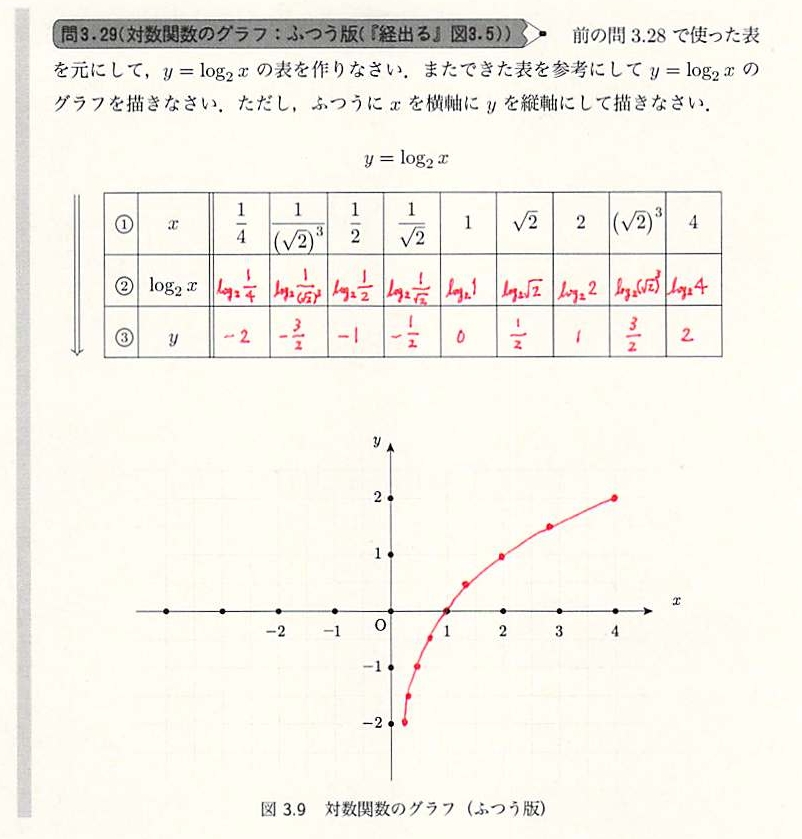 問3.29(対数関数のグラフ：ふつう版(『経出る』図3.5)) 前の問 3.28 で使った表
を元にして，y = log₂ x の表を作りなさい．またできた表を参考にして y = log₂ x の
グラフを描きなさい．ただし，ふつうに x を横軸に y を縦軸にして描きなさい．
y = log₂ x
① x 1/4 1/(√2)³ 1/2 1/√2 1 √2 2 (√2)³ 4
② log₂ x log₂ 1/4 log₂ 1/(√2)³ log₂ 1/2 log₂ 1/√2 log₂ 1 log₂ √2 log₂ 2 log₂ (√2)³ log₂ 4
③ y −2 −3/2 −1 −1/2 0 1/2 1 3/2 2
y
2
1
x
O
−2 −1 1 2 3 4
−1
−2
図 3.9 対数関数のグラフ（ふつう版）